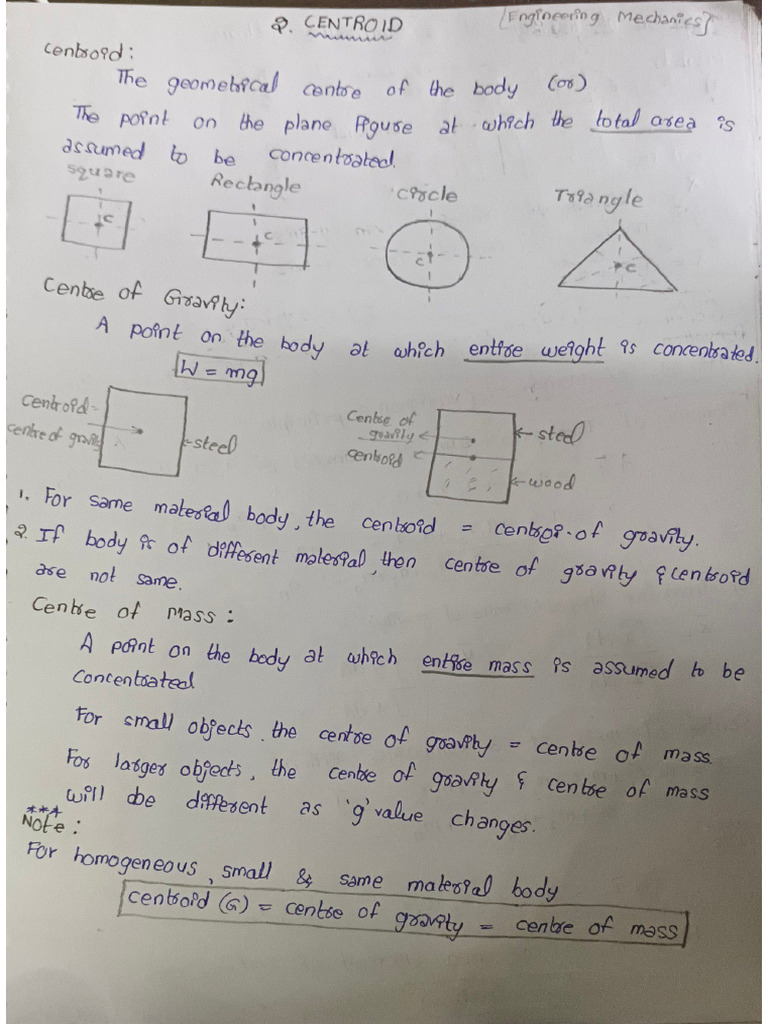 2. CENTROID [Engineering Mechanics]
Centroid:
The geometrical centre of the body (or)
The point on the plane Figure at which the total area is
assumed to be concentrated.
square Rectangle circle Triangle
C C C C
Centre of Gravity:
A point on the body at which entire weight is concentrated.
W = mg
Centroid =
centre of gravity
steel
Centre of
gravity
centroid
steel
wood
1. For same material body, the centroid = centre of gravity.
2. If body is of different material, then centre of gravity & centroid
are not same.
Centre of Mass:
A point on the body at which entire mass is assumed to be
concentrated
For small objects. the centre of gravity = centre of mass.
For larger objects, the centre of gravity & centre of mass
will be different as 'g' value changes.
***
Note:
For homogeneous, small & same material body
centroid (G) = centre of gravity = centre of mass